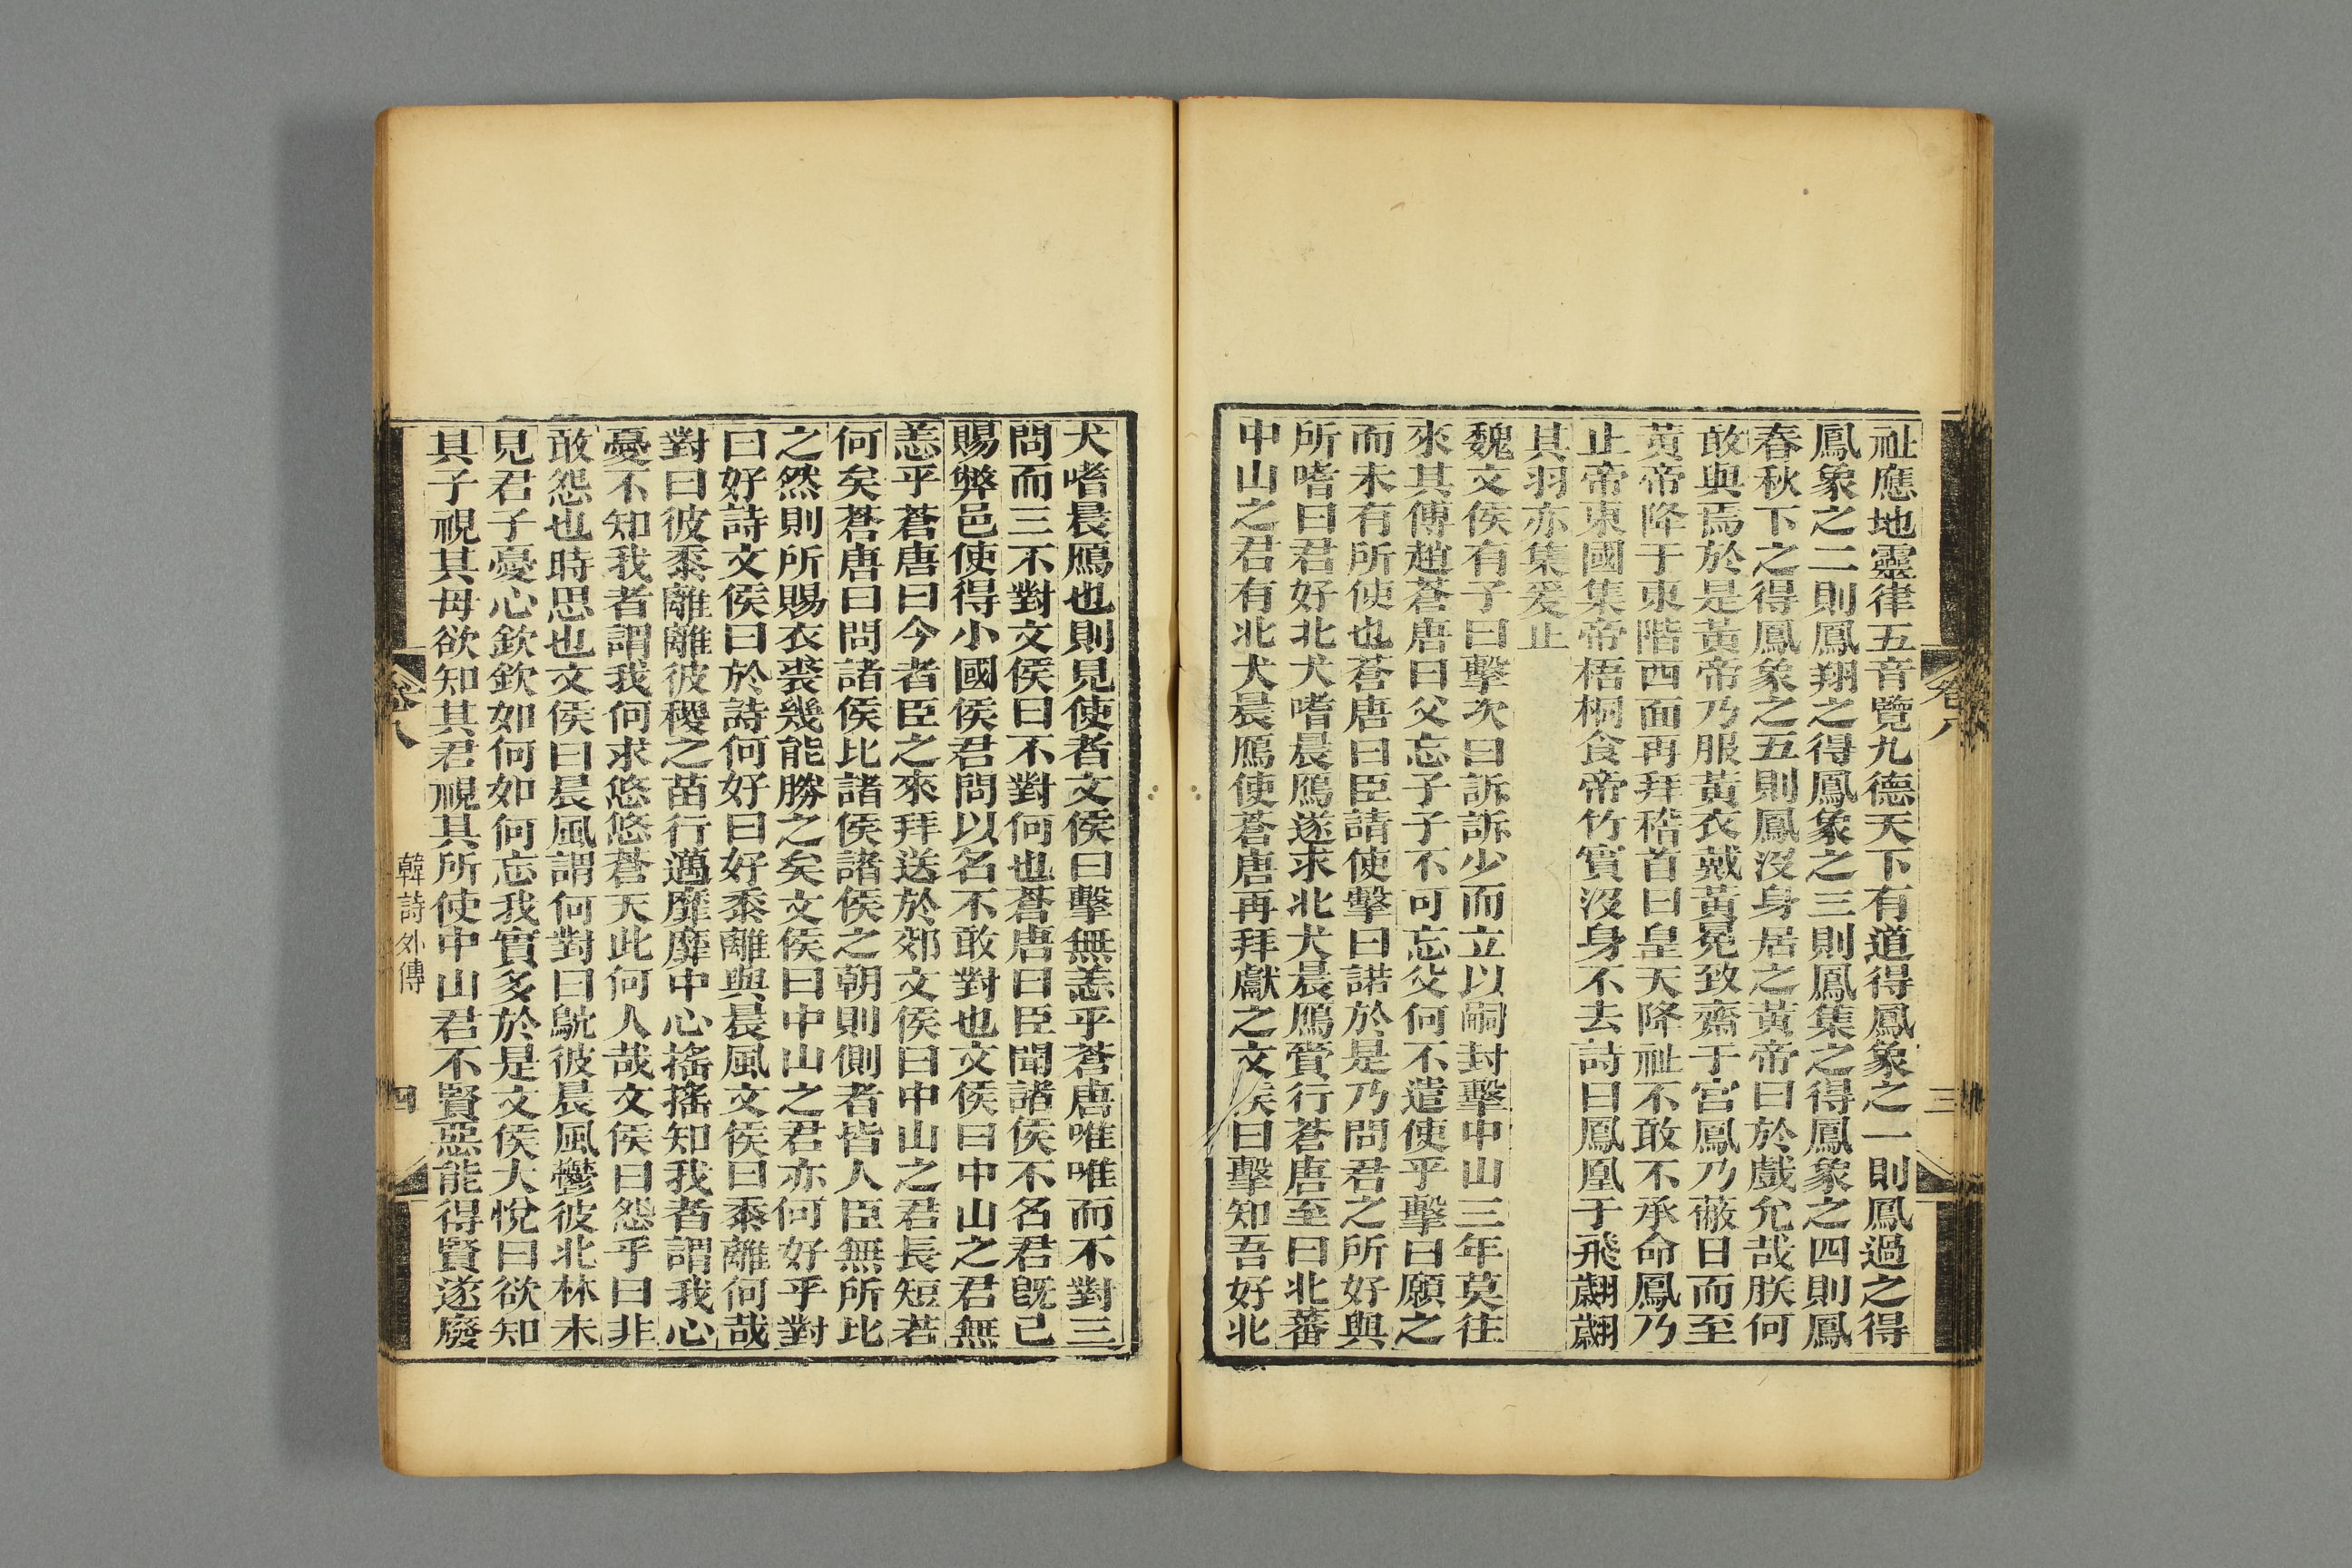 祉應地靈律五音覽九德天下有道得鳳象之一則鳳過之得
鳳象之二則鳳翔之得鳳象之三則鳳集之得鳳象之四則鳳
春秋下之得鳳象之五則鳳沒身居之黃帝曰於戲允哉朕何
敢與焉於是黃帝乃服黃衣戴黃冕致齋于宮鳳乃蔽日而至
黃帝降于東階西面再拜稽首曰皇天降祉不敢不承命鳳乃
止帝東國集帝梧桐食帝竹實沒身不去詩曰鳳凰于飛翽翽
其羽亦集爰止
魏文侯有子曰擊次曰訴訴少而立以嗣封擊中山三年莫往
來其傅趙蒼唐曰父忘子子不可忘父何不遣使乎擊曰願之
而未有所使也蒼唐曰臣請使擊曰諾於是乃問君之所好與
所嗜曰君好北犬嗜晨鴈遂求北犬晨鴈賫行蒼唐至曰北蕃
中山之君有北犬晨鴈使蒼唐再拜獻之文侯曰擊知吾好北
卷八
三
犬嗜晨鴈也則見使者文侯曰擊無恙乎蒼唐唯唯而不對三
問而三不對文侯曰不對何也蒼唐曰臣聞諸侯不名君旣已
賜弊邑使得小國侯君問以名不敢對也文侯曰中山之君無
恙乎蒼唐曰今者臣之來拜送於郊文侯曰中山之君長短若
何矣蒼唐曰問諸侯比諸侯諸侯之朝則側者皆人臣無所比
之然則所賜衣裘幾能勝之矣文侯曰中山之君亦何好乎對
曰好詩文侯曰於詩何好曰好黍離與晨風文侯曰黍離何哉
對曰彼黍離離彼稷之苗行邁靡靡中心搖搖知我者謂我心
憂不知我者謂我何求悠悠蒼天此何人哉文侯曰怨乎曰非
敢怨也時思也文侯曰晨風謂何對曰鴥彼晨風鬱彼北林未
見君子憂心欽欽如何如何忘我實多於是文侯大悅曰欲知
其子視其母欲知其君視其所使中山君不賢惡能得賢遂廢
卷八
韓詩外傳
四